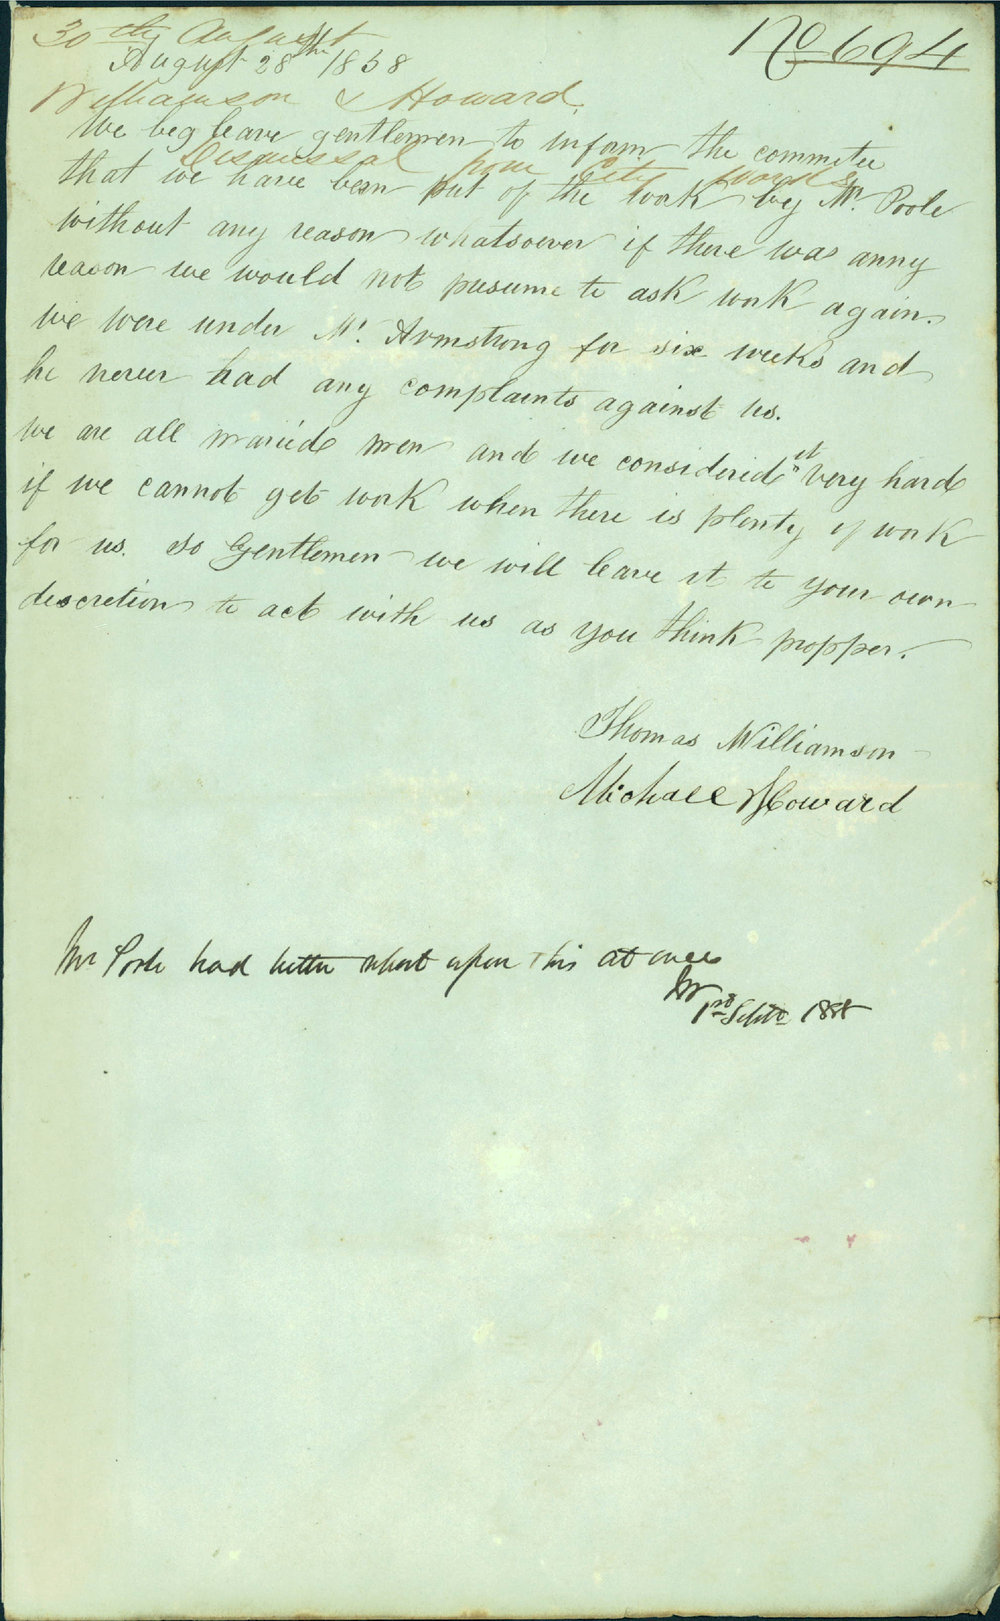 No. 694
30th August
August 28th 1858
Williamson & Howard
We beg leave gentlemen to inform the commitee
Dismissal from City works
that we have been put of the work by Mr. Poole
without any reason whatsoever if there was anny
reason we would not pusume to ask work again.
we were under Mr. Armstrong for six weeks and
he never had any complaints against us.
we are all marriede men and we considered it very hard
if we cannot get work when there is plenty of work
for us. so Gentlemen we will leave it to your own
descretion to act with us as you think propper.
Thomas Williamson
Michall Howard
Mr Poole had better report upon this at once
1st Septr 1858